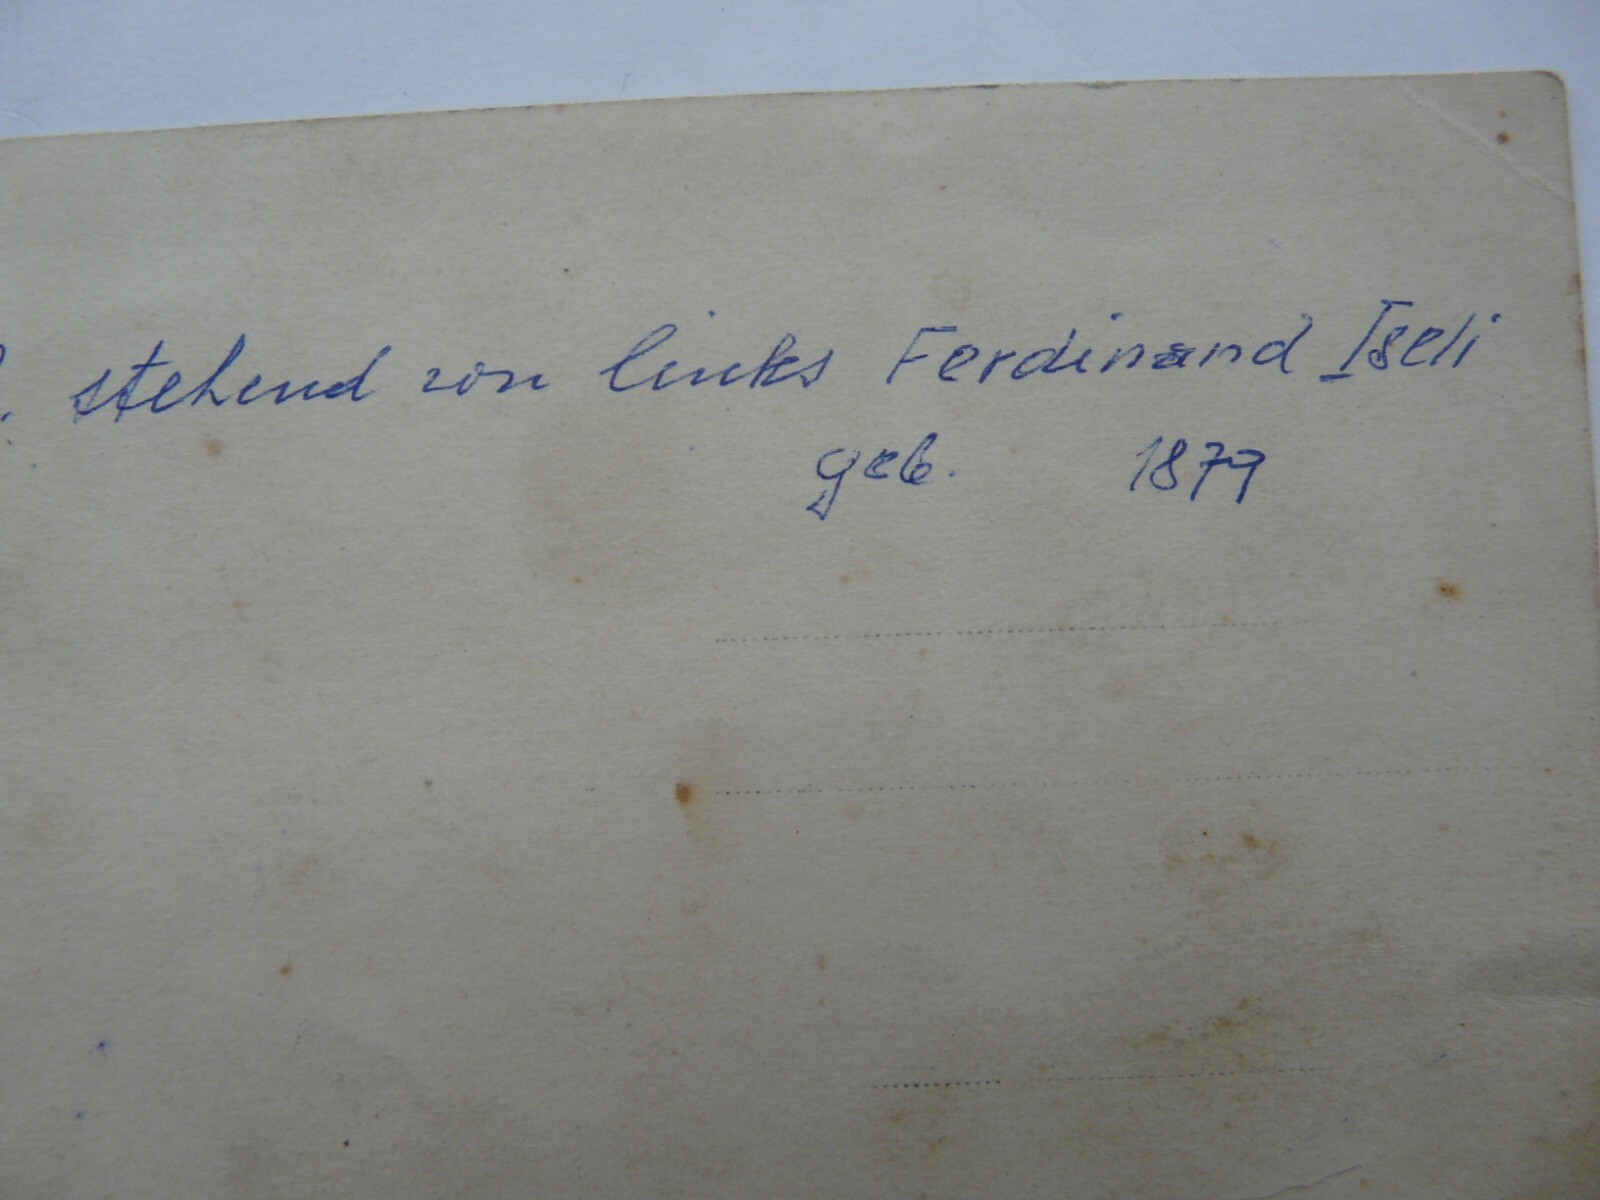 . stehend von links Ferdinand Iseli
geb. 1879